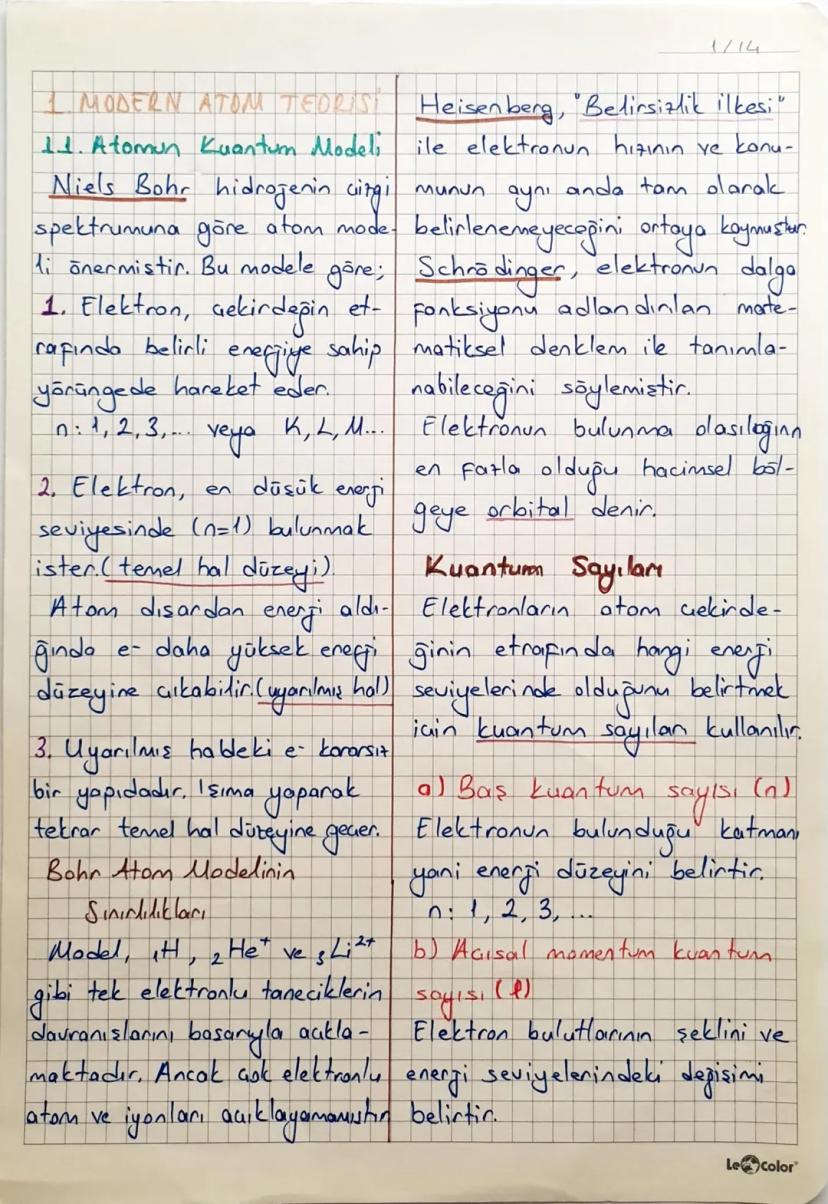 1/14
1. MODERN ATOM TEORİSİ
1.1. Atomun Kuantum Modeli
Niels Bohr hidrojenin çizgi
spektrumuna göre atom mode-
li önermiştir. Bu modele göre;
1. Elektron, çekirdeğin et-
rafında belirli enerjiye sahip
yörüngede hareket eder.
n: 1, 2, 3,... veya K, L, M...
2. Elektron, en düşük enerji
seviyesinde (n=1) bulunmak
ister. (temel hal düzeyi)
Atom dışardan enerji aldı-
ğında e- daha yüksek enerji
düzeyine çıkabilir. (uyarılmış hal)
3. Uyarılmış haldeki e- kararsız
bir yapıdadır. Işıma yaparak
tekrar temel hal düzeyine geçer.
Bohr Atom Modelinin
Sınırlılıkları
Model, ₁H, ₂He⁺ ve ₃Li²⁺
gibi tek elektronlu taneciklerin
davranışlarını başarıyla açıkla-
maktadır. Ancak çok elektronlu
atom ve iyonları açıklayamamıştır
Heisenberg, "Belirsizlik ilkesi"
ile elektronun hızının ve konu-
munun aynı anda tam olarak
belirlenemeyeceğini ortaya koymuştur.
Schrödinger, elektronun dalga
fonksiyonu adlandırılan mate-
matiksel denklem ile tanımla-
nabileceğini söylemiştir.
Elektronun bulunma olasılığının
en fazla olduğu hacimsel böl-
geye orbital denir.
Kuantum Sayıları
Elektronların atom çekirde-
ğinin etrafında hangi enerji
seviyelerinde olduğunu belirtmek
için kuantum sayıları kullanılır.
a) Baş kuantum sayısı (n)
Elektronun bulunduğu katmanı
yani enerji düzeyini belirtir.
n: 1, 2, 3, ...
b) Açısal momentum kuantum
sayısı (ℓ)
Elektron bulutlarının şeklini ve
enerji seviyelerindeki değişimi
belirtir.
Le Color